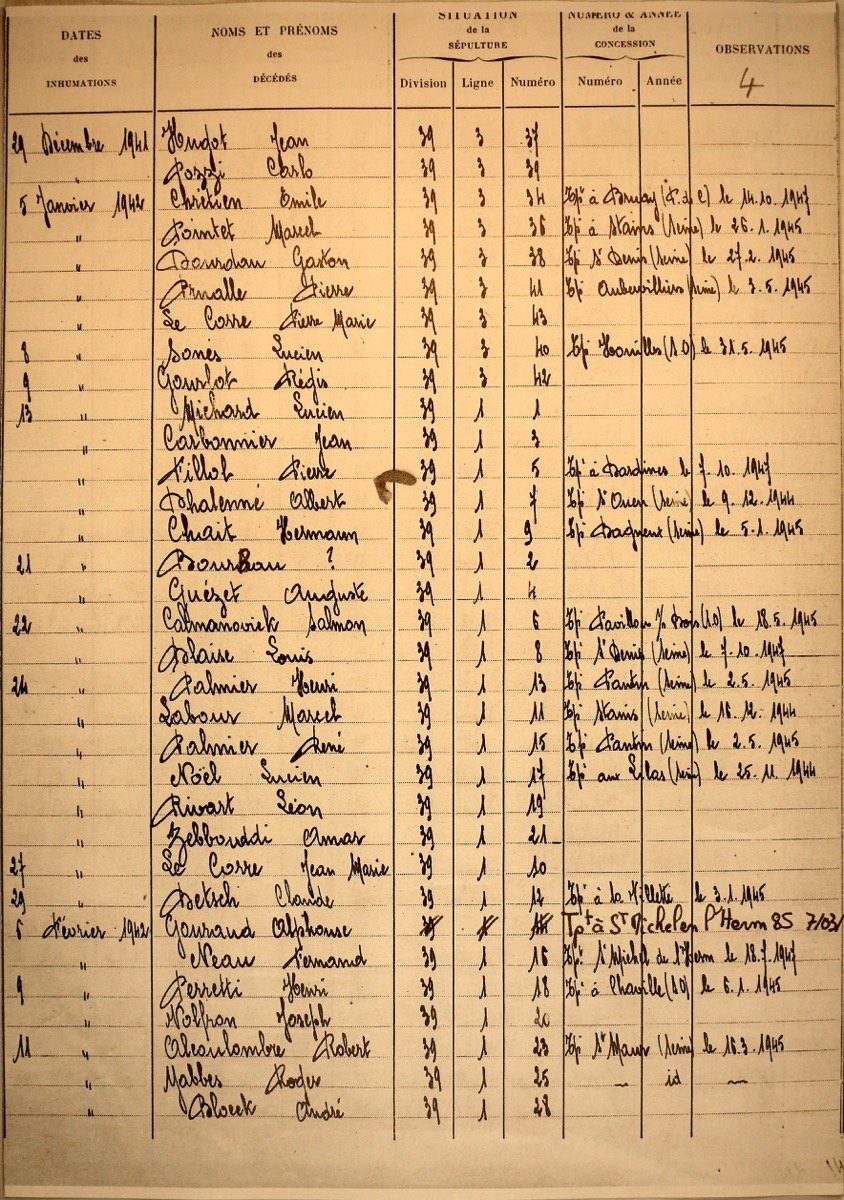 DATES des INHUMATIONS
NOMS ET PRÉNOMS des DÉCÉDÉS
SITUATION de la SÉPULTURE
NUMÉRO & ANNÉE de la CONCESSION
OBSERVATIONS
4
Division Ligne Numéro Numéro Année
29 Décembre 1941 Hudot Jean 39 3 37
" Pozzi Carlo 39 3 39
5 Janvier 1942 Chrétien Emile 39 3 34 Tpt à Bruay (P. de C) le 14.10.1947
" Pointet Marcel 39 3 36 Tpt à Stains (Seine) le 26.1.1945
" Bourdau Gaston 39 3 38 Tpt St Denis (Seine) le 27.2.1945
" Arnalle Pierre 39 3 41 Tpt Aubervilliers (Seine) le 3.5.1945
" Le Corre Pierre Marie 39 3 43
8 " Sonès Lucien 39 3 40 Tpt Houilles (S.O) le 31.5.1945
9 " Gourlot Régis 39 3 42
13 " Michard Lucien 39 1 1
" Carbonnier Jean 39 1 3
" Fillol Pierre 39 1 5 Tpt à Sardines le 7.10.1947
" Dhalenné Albert 39 1 7 Tpt St Ouen (Seine) le 9.12.1944
" Chuait Hermann 39 1 9 Tpt Bagneux (Seine) le 5.1.1945
21 " ? 39 1 2
" Guézet Auguste 39 1 4
22 " Calmanovick Salmon 39 1 6 Tpt Pavillons s/ Bois (S.O) le 18.5.1945
" Blaise Louis 39 1 8 Tpt St Denis (Seine) le 7.10.1947
24 " Palmier Henri 39 1 13 Tpt Pantin (Seine) le 2.5.1945
" Labour Marcel 39 1 11 Tpt Stains (Seine) le 16.12.1944
" Palmier René 39 1 15 Tpt Pantin (Seine) le 2.5.1945
" Noël Lucien 39 1 17 Tpt aux Lilas (Seine) le 25.11.1944
" Rivart Léon 39 1 19
" Zebbouddi Amar 39 1 21
27 " Le Corre Jean Marie 39 1 10
29 " Betsch Claude 39 1 12 Tpt à la Villette le 3.1.1945
6 Février 1942 Gouraud Alphonse 39 1 Tpt à St Michel en l'Herm 85 7/03/
" Neau Fernand 39 1 16 Tpt St Michel de l'Herm le 18.7.1947
9 " Perretti Henri 39 1 18 Tpt à Chaville (S.O) le 6.1.1945
" Nolfron Joseph 39 1 20
11 " Alcoulombre Robert 39 1 23 Tpt St Maur (Seine) le 16.3.1945
" Mabbes Roger 39 1 25 — id —
" Bloeck André 39 1 28